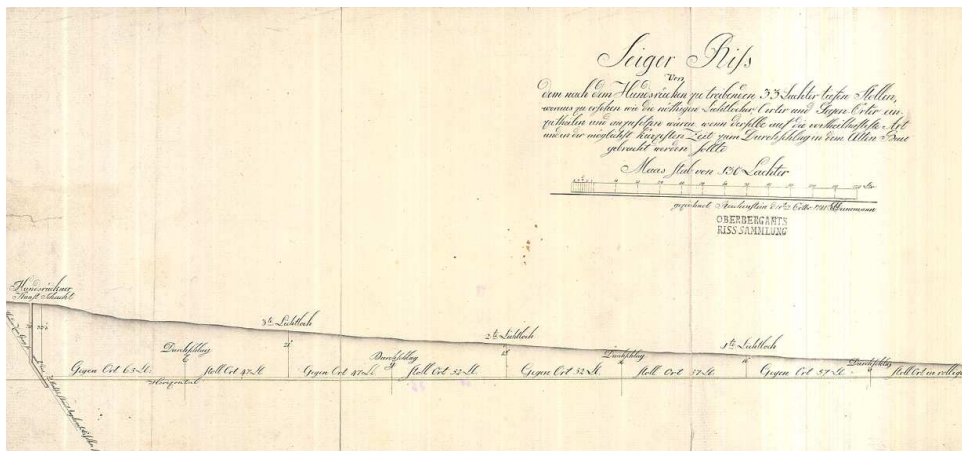 Seiger Riss
Von
dem nach dem Hundsrücken zu treibenden 33 Lachter tiefen Stollen,
woraus zu ersehen wie die nöthigen Lichtlöcher, Oerter und Gegen Örter ein
zutheilen und anzusetzen wären, wenn derselbe auf die vortheilhafteste Art
und in der möglichst kürzesten Zeit zum Durchschlag in dem Alten
gebracht werden sollte
Maas stab von 130 Lachter
gezeichnet Reichenstein
OBERBERGAMTS
RISS SAMMLUNG
Hundsrückner
Kunst Schacht
3te Lichtloch
2te Lichtloch
1te Lichtloch
Durchschlag
Durchschlag
Durchschlag
Durchschlag
Gegen Ort 63 Lt.
Stoll Ort 47 Lt.
Gegen Ort 47 Lt.
Stoll Ort 52 Lt.
Gegen Ort 52 Lt.
Stoll Ort 57 Lt.
Gegen Ort 57 Lt.
Stoll Ort in
Horizontal